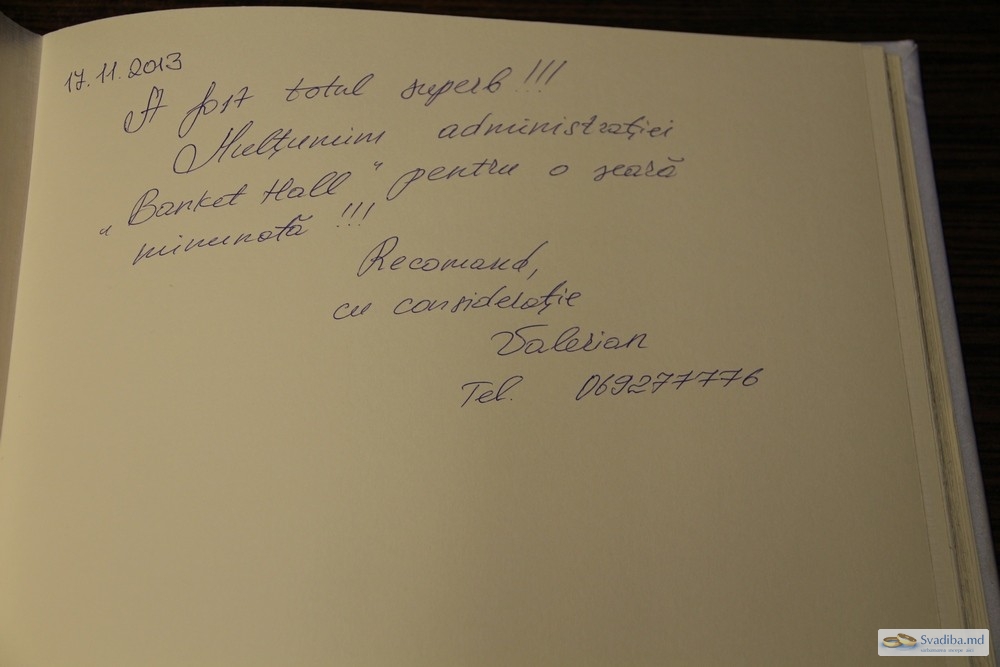 17.11.2013
A fost totul superb!!!
Mulţumim administraţiei
„Banket Hall" pentru o seară
minunată!!!
Recomand,
cu consideraţie
Valerian
Tel. 069277776
Svadiba.md